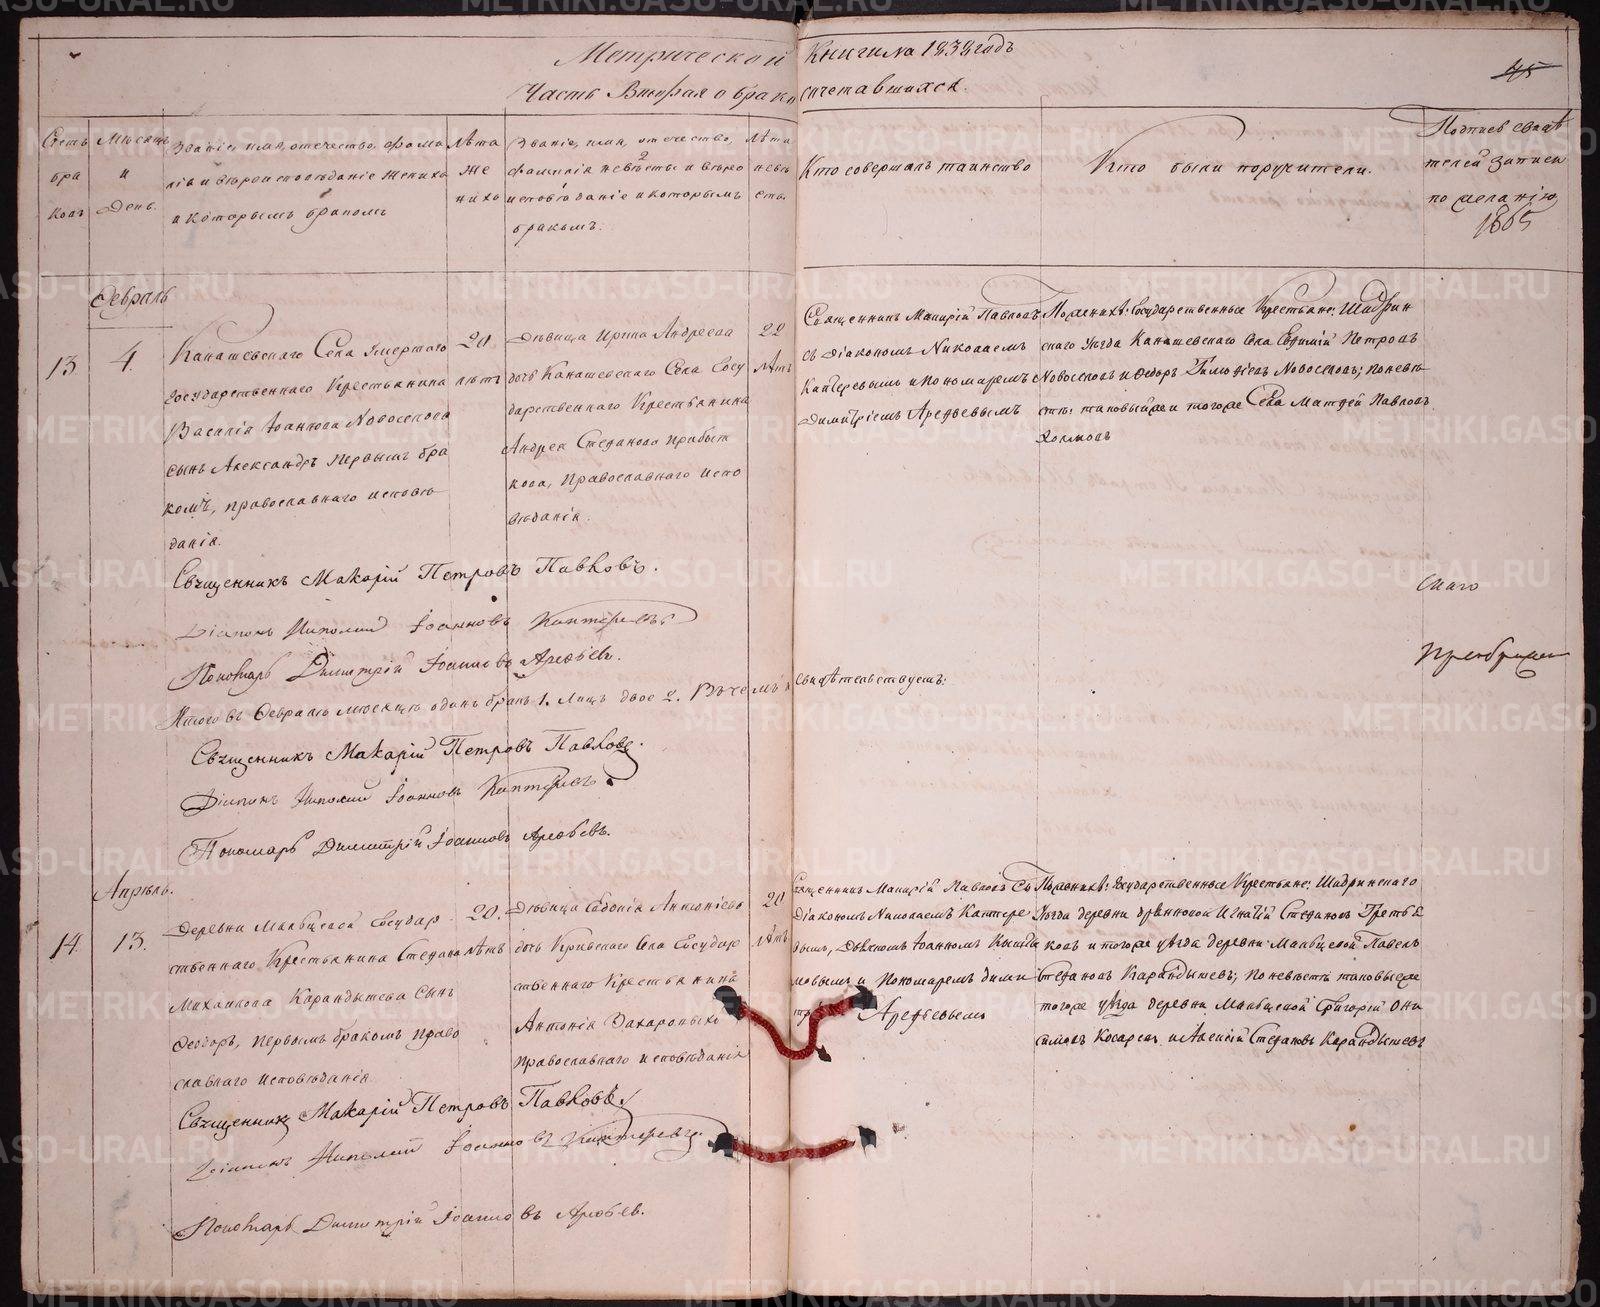 Метрической Книги на 1838 годъ
Часть Вторая о бракосочетавшихся.
75
Счетъ браковъ
Мѣсяцъ и День.
Званіе, имя, отечество, фамилія и вѣроисповѣданіе жениха и которымъ бракомъ
Лѣта жениха
Званіе, имя, отечество, фамилія невѣсты и вѣроисповѣданіе и которымъ бракомъ.
Лѣта невѣсты
Кто совершалъ таинство
Кто были поручители.
Подпись свидѣтелей записи по желанію
1865
Февраль
13
4.
Канашевскаго Села умершаго
государственнаго Крестьянина
Василія Іоаннова Новоселова
сынъ Александръ первымъ бра
комъ, православнаго исповѣ
данія.
20
лѣтъ
Дѣвица Ирина Андреева
дочь Канашевскаго Села Госу
дарственнаго Крестьянина
Андрея Стефанова
православнаго испо
вѣданія.
22
лѣтъ
Священникъ Макарій Павловъ
съ Діакономъ Николаемъ
Каптеревымъ и пономаремъ
Димитріемъ Арефьевымъ
По женихѣ: Государственные Крестьяне: Шадрин
скаго Уѣзда Канашевскаго Села Евфимій Петровъ
Новоселовъ и Федоръ Тимофѣевъ Новоселовъ; по невѣ
стѣ: таковый же и того же Села Матфей Павловъ
Священникъ Макарій Петровъ Павловъ.
Діаконъ Николай Іоанновъ Каптеревъ
Пономарь Димитрій Іоанновъ Арефьевъ.
Итого въ Февралѣ мѣсяцѣ одинъ бракъ 1. Лицъ двое 2. Въ чемъ и свидѣтельствуемъ:
Священникъ Макарій Петровъ Павловъ.
Діаконъ Николай Іоанновъ Каптеревъ.
Пономарь Димитрій Іоанновъ Арефьевъ.
Апрѣль.
14
13.
Деревни Мальцевой Государ
ственнаго Крестьянина Стефана
Михайлова Карандышева Сынъ
Феодоръ, первымъ бракомъ право
славнаго исповѣданія
20.
лѣтъ
Дѣвица Евдокія Антоніева
дочь Кривскаго Села Государ
ственнаго Крестьянина
Антонія Захаровыхъ
православнаго исповѣданія
20
лѣтъ
Священникъ Макарій Павловъ Съ
Діакономъ Николаемъ Каптере
вымъ, Дьячкомъ Іоанномъ
и Пономаремъ Дими
Арефьевымъ
По женихѣ: Государственные Крестьяне: Шадринскаго
Уѣзда деревни Игнатій Стефановъ
и того же уѣзда деревни Мальцевой Павелъ
Стефановъ Карандышевъ; По невѣстѣ таковые же
того же уѣзда деревни Мальцевой Григорій Они
симовъ Косаревъ и Алексій Стефановъ Карандышевъ
Священникъ Макарій Петровъ Павловъ.
Діаконъ Николай Іоанновъ Каптеревъ.
Пономарь Димитрій Іоанновъ Арефьев.
METRIKI.GASO-URAL.RU